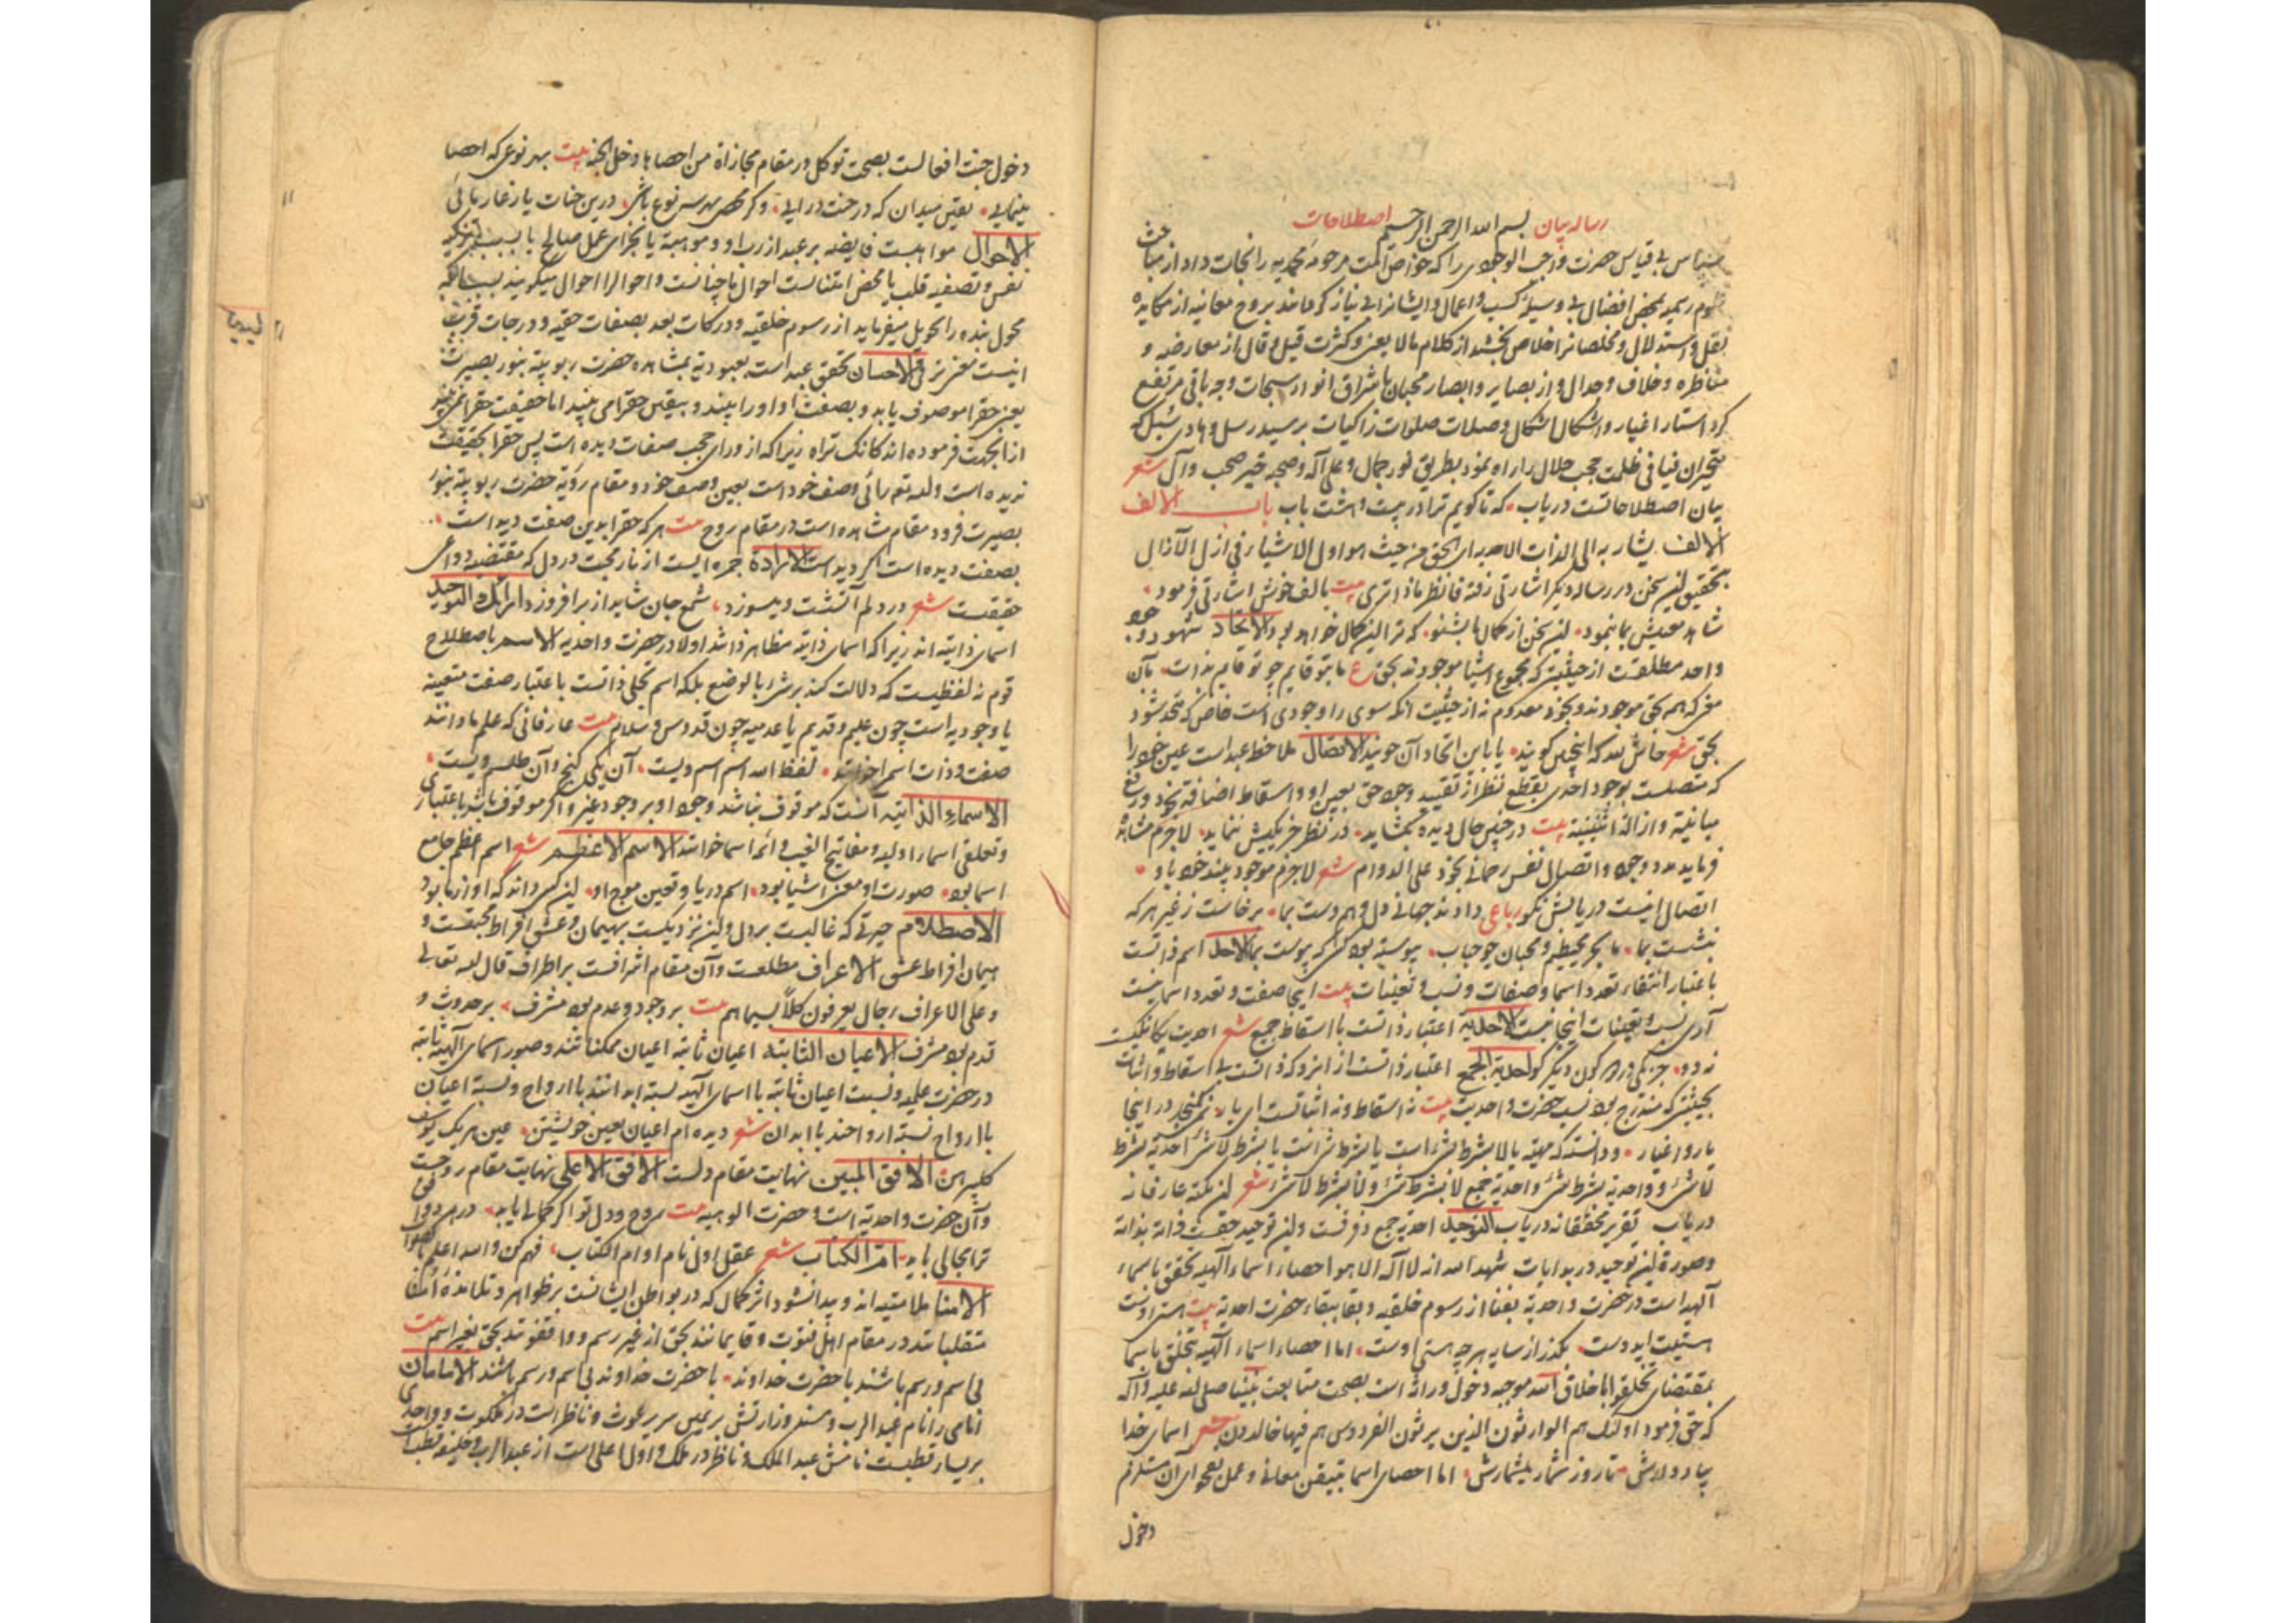 رساله بیان بسم الله الرحمن الرحیم اصطلاحات
سپاس بی قیاس حضرت واجب الوجودی را که خواص امت مرحومه محمدیه را نجات داد از مباحث
رسمیه بمحض افضال بی وسیلهٔ کسب و اعمال و ایشانرا بی نیاز کرداند بروح معانیه از مکایده
نقل و استدلال و مخلصانرا خلاص بخشید از کلام مالا یعنی و کثرت قیل و قال از معارضه و
مناظره و خلاف و جدال و از بصایر و ابصار محبان باشراق انوار سبحات وجه باقی مرتفع
کرد استار اغیار و اشکال اشکال و صلات صلوات زاکیات بر سید رسل و هادی سبل که
متحیران فیافی ظلمت حجب جلال را راه نمود بطریق نور جمال و علی آله و صحبه خیر صحب و آل شعر
بیان اصطلاحاتست دریاب که تا کویم ترا در بیست و هشت باب باب الالف
الالف یشار به الی الذات الاحدیه ای الحق من حیث هو اول الاشیاء فی ازل الآزال
تحقیق این سخن در رساله دیکر اشارتی رفته فانظر ماذا تری بیت بالف خوش اشارتی فرمود
شاهد معینش بما بنمود این سخن از کمال ما بشنو که ترا این کمال خواهد بود الاتحاد شهود وجود
واحد مطلقست از حیثیتی که مجموع اشیا موجودند بحق ع ما بتو قایم چو تو قایم بذات بآن
معنی که همه بحق موجودند و بخود معدوم نه از حیثیت آنکه سوی را وجودی است خاص که متحد شود
بحق شعر حاش لله که اینچنین کویند یا باین اتحاد آن جویند الاتصال ملاحظه عبد است عین خود را
که متصلست بوجود احدی بقطع نظر از تقیید وجود حق بعین او و اسقاط اضافه بخود و رفع
مباینة و ازاله اثنینیة بیت در چنین حال دیده بکشاید در نظر جز یکیش ننماید لاجرم مشاهده
فرماید مدد وجود و اتصال نفس رحمانی بخود علی الدوام شعر لاجرم موجود بیند خود باو
اتصال اینست دریابش نکو رباعی دادند جهانی دل و هم دست بما برخاست ز غیر هر که
بنشست بما ما بحر محیطیم و محبان چو حباب پیوسته بود کسی که پیوست بما الاحد اسم ذاتست
باعتبار انتفاء تعدد اسما و صفات و نسب و تعینات بیت اینجا صفت و تعدد اسما نیست
آری نسب و تعینات اینجا نیست الاحدیه اعتبار ذاتست با اسقاط جمیع شعر احدیت یکانکیست
نه دو جز یکی در دو کون دیکر کو احدیة الجمع اعتبار ذاتست از آنرو که ذاتست بی اسقاط و اثبات
بحیثیتی که مندرج بود نسب حضرت واحدیت بیت نه اسقاط و نه اثباتست ای یار نمی کنجد در اینجا
یار و اغیار و دانسته که مهیة یا لا بشرط شیء است یا بشرط شی است یا بشرط لا شیء احدیة بشرط
لا شیء و واحدیة بشرط شیء و احدیة جمع لا بشرط شیء ولا بشرط لا شیء شعر این نکته عارفانه
دریاب تقریر محققانه دریاب التوحید احدیة جمع و فرقست و این توحید حقست ذاته بذاته
و صورة این توحید در بدایات شهد الله انه لا اله الا هو احصاء اسماء الهیه تحقق باسماء
الهیه است در حضرت واحدیة بفنا از رسوم خلقیه و بقا ببقاء حضرت احدیة بیت هستی اوست
بکذر از سایه هر چه هستی اوست اما احصاء اسماء الهیه تخلق باسما
بمقتضای تخلقوا باخلاق الله موجبه دخول وراثه است بصحت متابعت نبینا صلی الله علیه و آله
که حق فرمود اولئک هم الوارثون الذین یرثون الفردوس هم فیها خالدون شعر اسمای خدا
تا روز شمار بشمارش اما احصای اسما بتیقن معانی و عمل بفحوای آن مستلزم
دخول
دخول جنت افعالست بصحت توکل در مقام مجازاة من احصاها دخل الجنه بیت بهر نوعی که احصا
مینمایی یقین میدان که در جنت درآیی و کر محصی هر سه نوع باشی درین جنات یا رغما
الاحوال مواهبست فایضه بر عبد از رب او و موهبة یا جزای عمل صالح یا بسبب تزکیه
نفس و تصفیه قلب یا محض امتنانست احوال ما چنانست و احوال را احوال میکویند بسبب آنکه
محول بنده را تحویل میفرماید از رسوم خلقیه و درکات بعد بصفات حقیه و درجات قرب
اینست معنی ترقی الاحسان تحقق عبد است بعبودیة بمشاهده حضرت ربوبیة بنور بصیرت
یعنی حق را موصوف یابد و بصفت او او را بیند و بیقین حق را می بیند اما حقیقت حق را نمی بیند
از اینجهت فرموده اند کانک تراه زیرا که از ورای حجب صفات دیده است پس حق را بحقیقت
ندیده است و لله تعم رائی وصف خود است بعین وصف خود و مقام رؤیة حضرت ربوبیة بنور
بصیرت فرود مقام مشاهده است در مقام روح بیت هر که حق را بدین صفت دیداست
بصفت دیده است اکر دیداست الارادة جمره ایست از نار محبت در دل که مقتضیه دواعی
حقیقت شعر در دلم آتشست و میسوزد شمع جان شاید ار برافروزد ارائک التوحید
اسمای ذاتیه اند زیرا که اسمای ذاتیه مظاهر ذاتند اولا در حضرت واحدیه الاسم باصطلاح
قوم نه لفظیست که دلالت کند بر شیء بالوضع بلکه اسم تجلی ذاتست باعتبار صفت متعینه
یا وجودیه است چون علیم و قدیم یا عدمیه چون قدوس و سلام بیت عارفانی که علم ما دانند
صفت و ذات اسم خوانند لفظ الله اسم اسم ویست آن یکی کنج و آن طلسم ویست
الاسماء الذاتیه آنست که موقوف نباشد وجود او بر وجود غیر و اکر موقوف باشد باعتباری
و تعلقی اسماء اولیه و مفاتیح الغیب و ائمه اسما خوانند الاسم الاعظم شعر اسم اعظم جامع
اسما بود صورت او معنی اشیا بود اسم دریا و تعین موج او این کسی داند که او از ما بود
الاصطلام حیرتی که غالبست بر دل و این نزدیکست بهیمان و عشق افراط محبتست و
هیمان افراط عشق الاعراف مطلعست و آن مقام اشرافست بر اطراف قال الله تعالی
و علی الاعراف رجال یعرفون کلاً بسیماهم بیت بر وجود و عدم بود مشرف بر حدوث و
قدم بود مشرف الاعیان الثابته اعیان ثابته اعیان ممکناتند و صور اسمای الهیه ثابته
در حضرت علمیه و نسبت اعیان ثابته با اسمای الهیه نسبة ابدانند با ارواح و نسبة اعیان
با ارواح نسبة ارواحند با ابدان شعر دیده ام اعیان بعین خویشتن عین هر یک یوسف
کلپیرهن الافق المبین نهایت مقام دلست الافق الاعلی نهایت مقام روحست
و آن حضرت واحدیه است و حضرت الوهیه بیت روح و دل تو اکر کمالی یابد در هر دو افق
ترا مجالی باید ام الکتاب شعر عقل اول نام او ام الکتاب فهم کن والله اعلم بالصواب
الامنا ملامتیه اند و پیدا نشود اثر کمال که در بواطن ایشانست بر ظواهر و تلامذه امنا
متقلباتند در مقام اهل فتوت و قایمانند بحق از غیر رسم و واقفوتند بحق بغیر اسم بیت
بی اسم و رسم باشند با حضرت خداوند با حضرت خداوند بی اسم و رسم باشند الامامان
امامی را نام عبد الرب و مسند وزارتش بر یمین سریر غوث و ناظر است در ملکوت و واحدی
بر یسار قطبست نامش عبد الملک و ناظر در ملک و اول اعلی است از عبد الرب و خلیفه قطبست